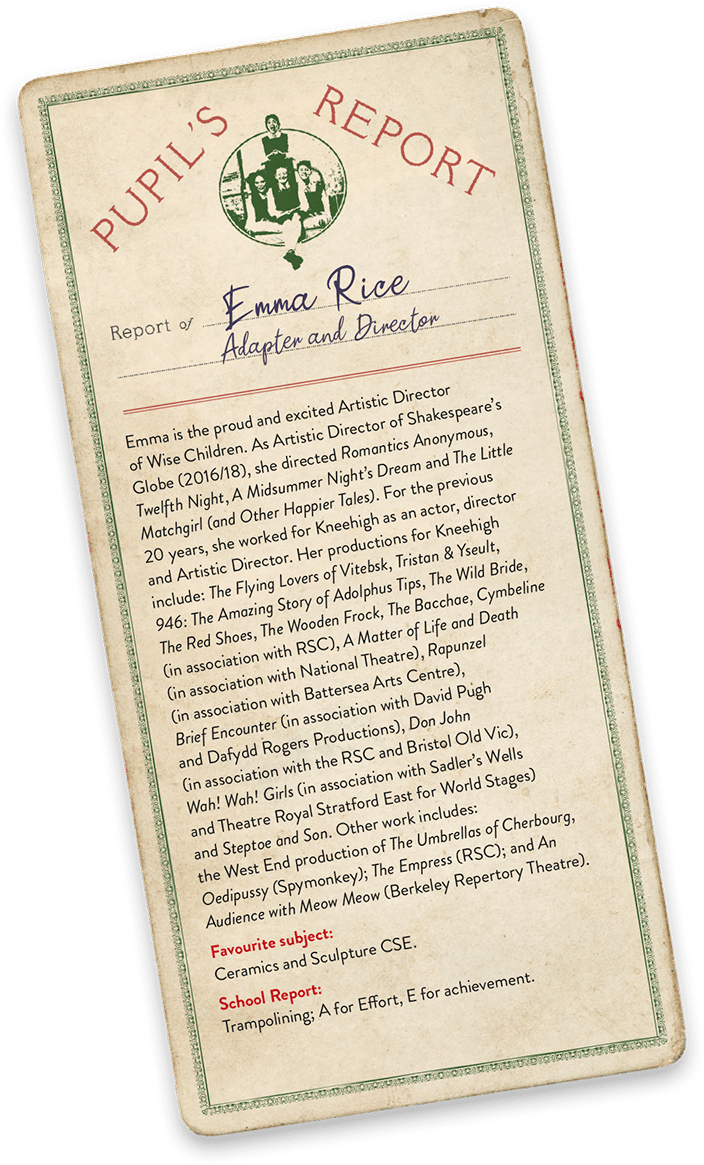 PUPIL'S REPORT
Report of Emma Rice
Adapter and Director
Emma is the proud and excited Artistic Director
of Wise Children. As Artistic Director of Shakespeare's
Globe (2016/18), she directed Romantics Anonymous,
Twelfth Night, A Midsummer Night's Dream and The Little
Matchgirl (and Other Happier Tales). For the previous
20 years, she worked for Kneehigh as an actor, director
and Artistic Director. Her productions for Kneehigh
include: The Flying Lovers of Vitebsk, Tristan & Yseult,
946: The Amazing Story of Adolphus Tips, The Wild Bride,
The Red Shoes, The Wooden Frock, The Bacchae, Cymbeline
(in association with RSC), A Matter of Life and Death
(in association with National Theatre), Rapunzel
(in association with Battersea Arts Centre),
Brief Encounter (in association with David Pugh
and Dafydd Rogers Productions), Don John
(in association with the RSC and Bristol Old Vic),
Wah! Wah! Girls (in association with Sadler's Wells
and Theatre Royal Stratford East for World Stages)
and Steptoe and Son. Other work includes:
the West End production of The Umbrellas of Cherbourg,
Oedipussy (Spymonkey); The Empress (RSC); and An
Audience with Meow Meow (Berkeley Repertory Theatre).
Favourite subject:
Ceramics and Sculpture CSE.
School Report:
Trampolining; A for Effort, E for achievement.